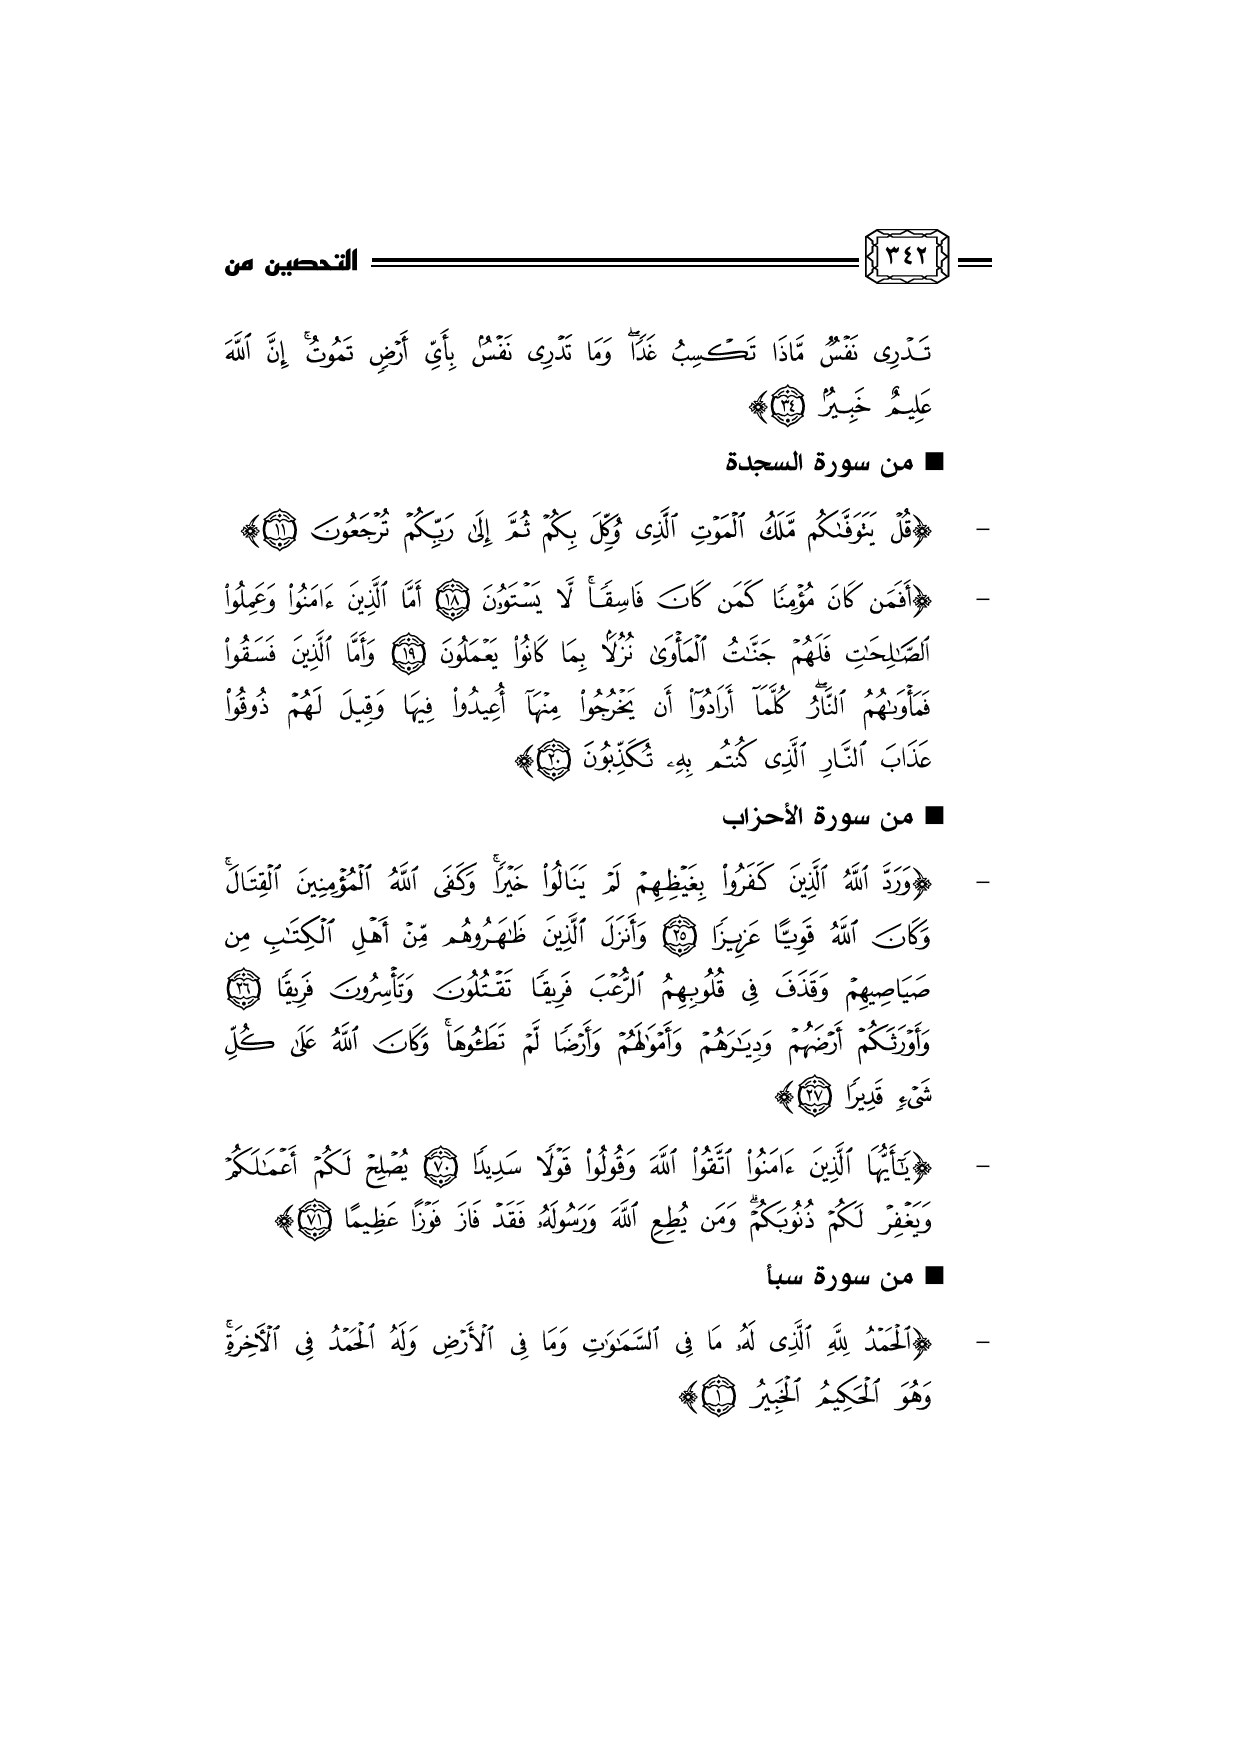 ٣٤٢ التحصين من
تَدْرِى نَفْسٌ مَّاذَا تَكْسِبُ غَدًا ۖ وَمَا تَدْرِى نَفْسٌۢ بِأَىِّ أَرْضٍ تَمُوتُ ۚ إِنَّ ٱللَّهَ
عَلِيمٌ خَبِيرٌۢ ﴿٣٤﴾﴾
■ من سورة السجدة
- ﴿قُلْ يَتَوَفَّىٰكُم مَّلَكُ ٱلْمَوْتِ ٱلَّذِى وُكِّلَ بِكُمْ ثُمَّ إِلَىٰ رَبِّكُمْ تُرْجَعُونَ ﴿١١﴾﴾
- ﴿أَفَمَن كَانَ مُؤْمِنًا كَمَن كَانَ فَاسِقًا ۚ لَّا يَسْتَوُۥنَ ﴿١٨﴾ أَمَّا ٱلَّذِينَ ءَامَنُوا۟ وَعَمِلُوا۟
ٱلصَّـٰلِحَـٰتِ فَلَهُمْ جَنَّـٰتُ ٱلْمَأْوَىٰ نُزُلًۢا بِمَا كَانُوا۟ يَعْمَلُونَ ﴿١٩﴾ وَأَمَّا ٱلَّذِينَ فَسَقُوا۟
فَمَأْوَىٰهُمُ ٱلنَّارُ ۖ كُلَّمَآ أَرَادُوٓا۟ أَن يَخْرُجُوا۟ مِنْهَآ أُعِيدُوا۟ فِيهَا وَقِيلَ لَهُمْ ذُوقُوا۟
عَذَابَ ٱلنَّارِ ٱلَّذِى كُنتُم بِهِۦ تُكَذِّبُونَ ﴿٢٠﴾﴾
■ من سورة الأحزاب
- ﴿وَرَدَّ ٱللَّهُ ٱلَّذِينَ كَفَرُوا۟ بِغَيْظِهِمْ لَمْ يَنَالُوا۟ خَيْرًا ۚ وَكَفَى ٱللَّهُ ٱلْمُؤْمِنِينَ ٱلْقِتَالَ ۚ
وَكَانَ ٱللَّهُ قَوِيًّا عَزِيزًا ﴿٢٥﴾ وَأَنزَلَ ٱلَّذِينَ ظَـٰهَرُوهُم مِّنْ أَهْلِ ٱلْكِتَـٰبِ مِن
صَيَاصِيهِمْ وَقَذَفَ فِى قُلُوبِهِمُ ٱلرُّعْبَ فَرِيقًا تَقْتُلُونَ وَتَأْسِرُونَ فَرِيقًا ﴿٢٦﴾
وَأَوْرَثَكُمْ أَرْضَهُمْ وَدِيَـٰرَهُمْ وَأَمْوَٰلَهُمْ وَأَرْضًا لَّمْ تَطَـُٔوهَا ۚ وَكَانَ ٱللَّهُ عَلَىٰ كُلِّ
شَىْءٍ قَدِيرًا ﴿٢٧﴾﴾
- ﴿يَـٰٓأَيُّهَا ٱلَّذِينَ ءَامَنُوا۟ ٱتَّقُوا۟ ٱللَّهَ وَقُولُوا۟ قَوْلًا سَدِيدًا ﴿٧٠﴾ يُصْلِحْ لَكُمْ أَعْمَـٰلَكُمْ
وَيَغْفِرْ لَكُمْ ذُنُوبَكُمْ ۗ وَمَن يُطِعِ ٱللَّهَ وَرَسُولَهُۥ فَقَدْ فَازَ فَوْزًا عَظِيمًا ﴿٧١﴾﴾
■ من سورة سبأ
- ﴿ٱلْحَمْدُ لِلَّهِ ٱلَّذِى لَهُۥ مَا فِى ٱلسَّمَـٰوَٰتِ وَمَا فِى ٱلْأَرْضِ وَلَهُ ٱلْحَمْدُ فِى ٱلْـَٔاخِرَةِ ۚ
وَهُوَ ٱلْحَكِيمُ ٱلْخَبِيرُ ﴿١﴾﴾